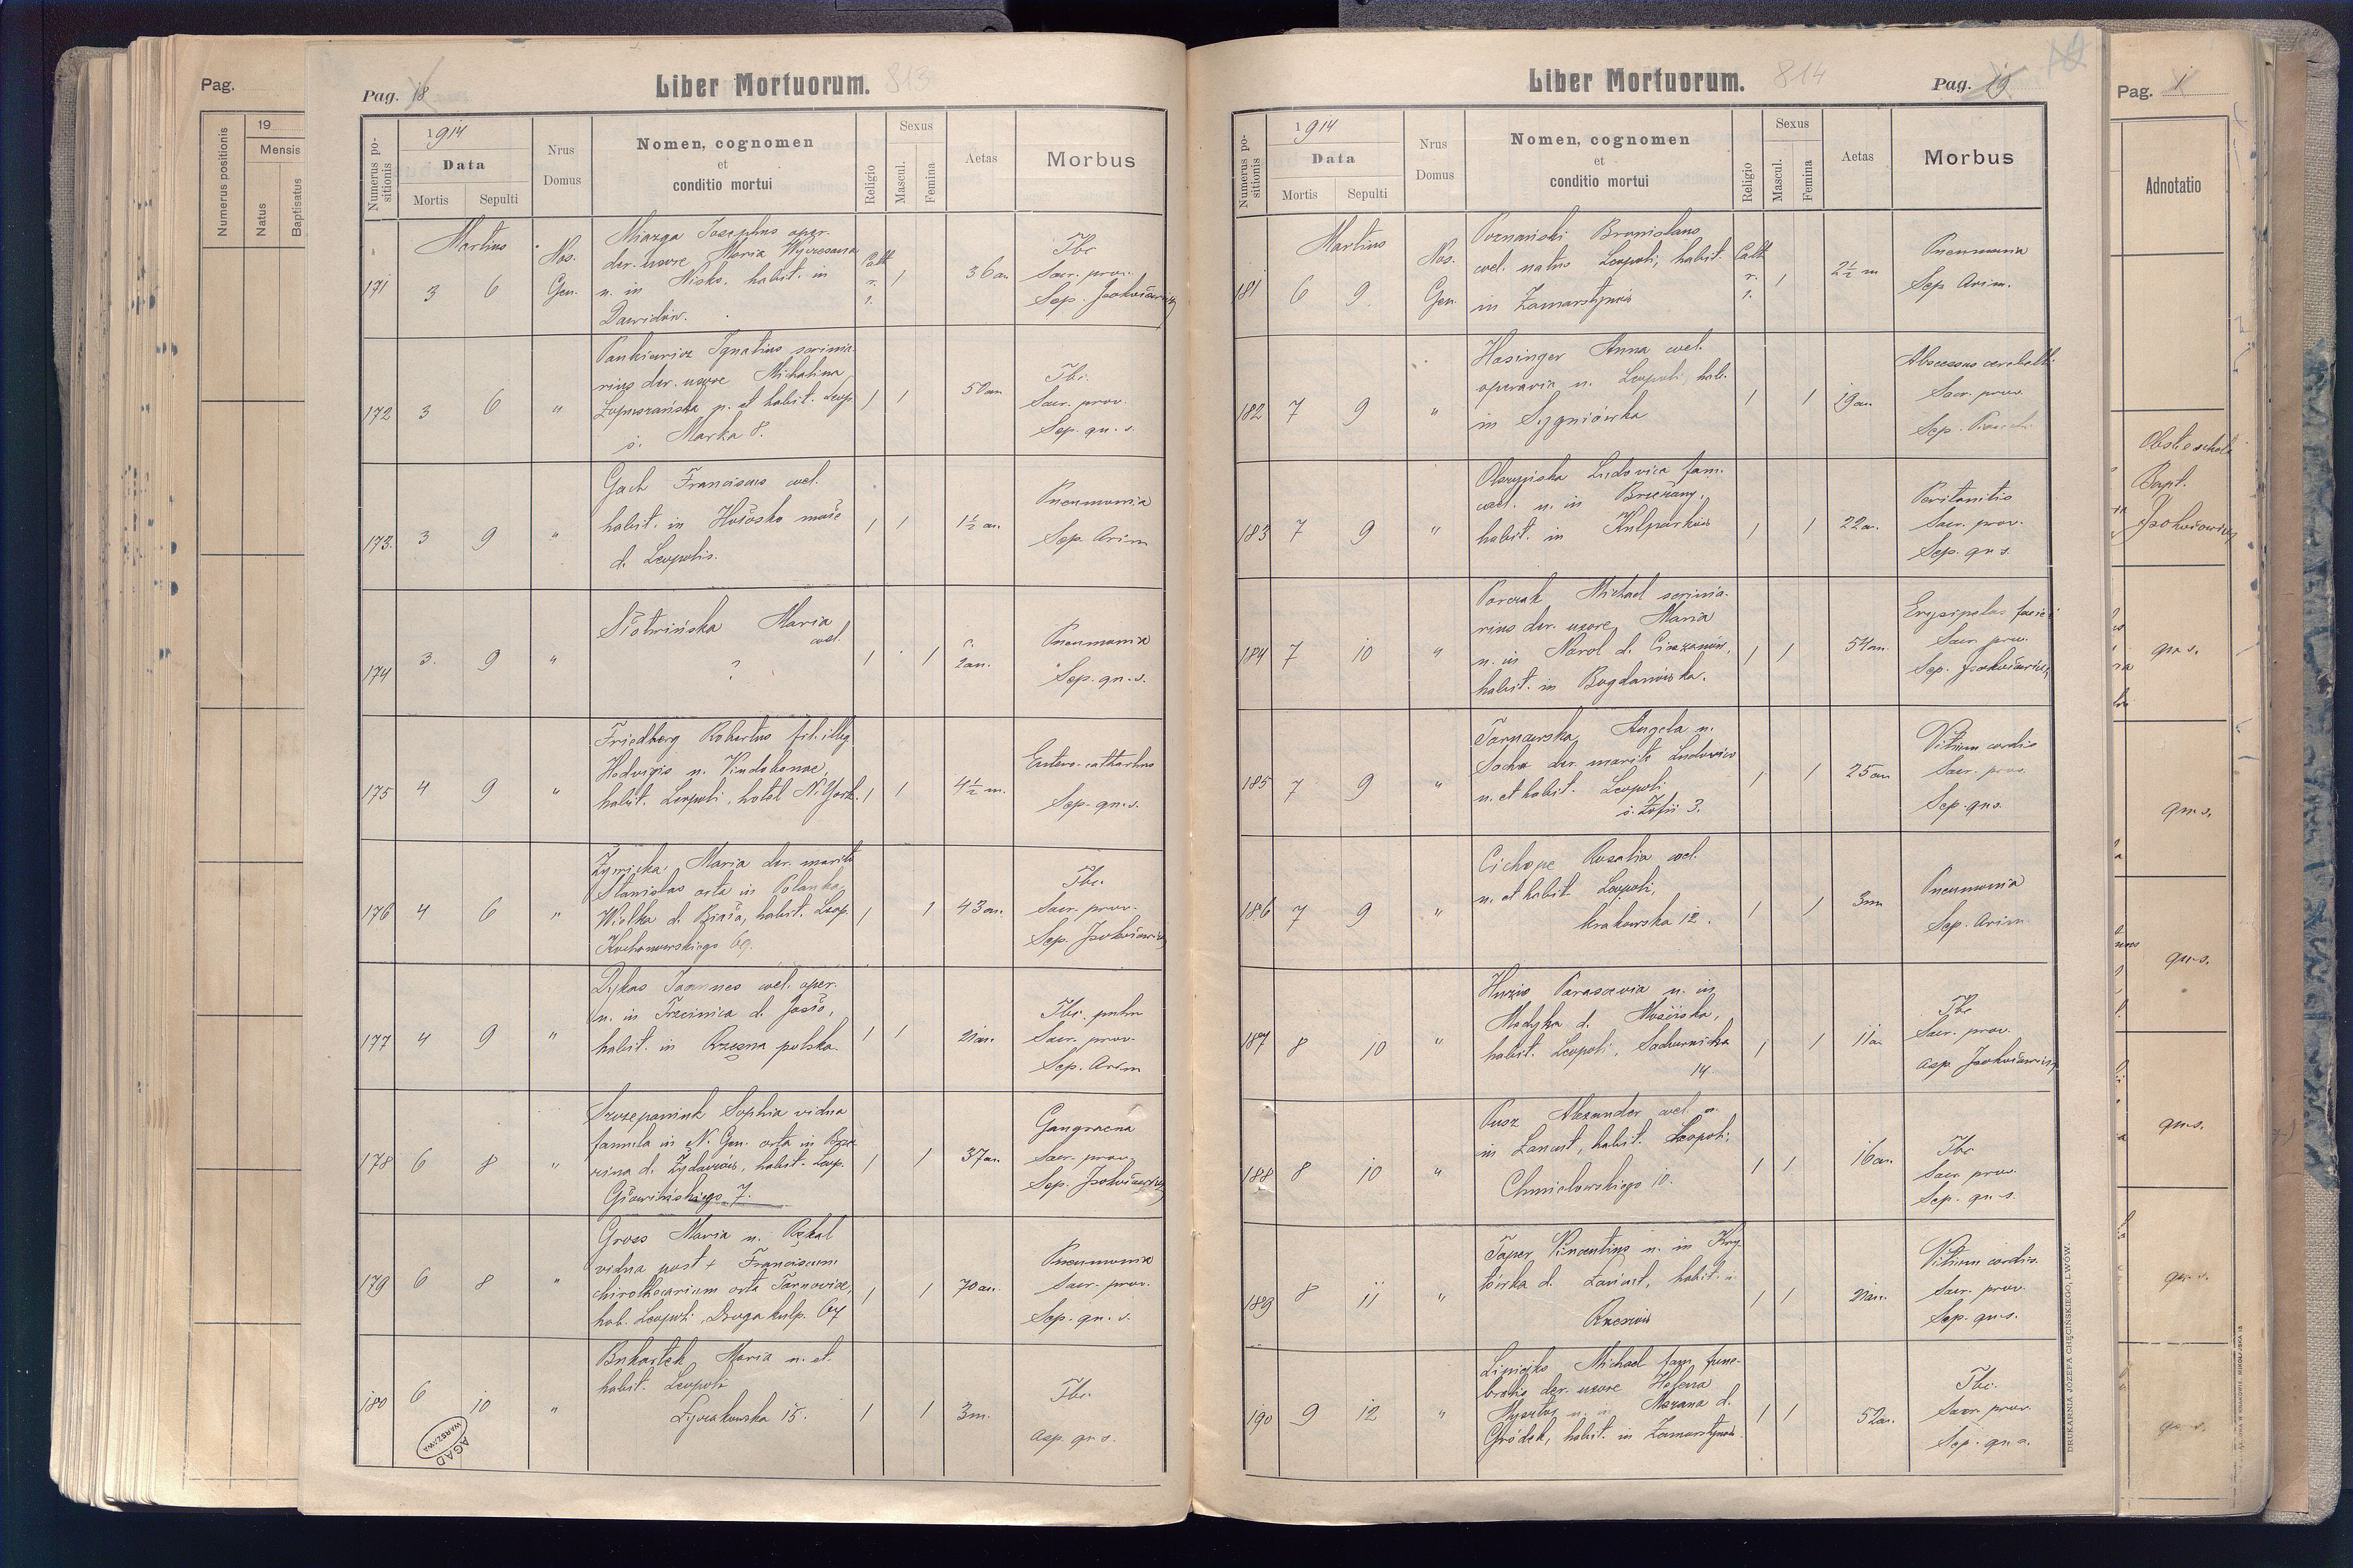 Pag.
Numerus positionis
19
Mensis
Natus
Baptisatus
Pag. 18
Liber Mortuorum. 813
Numerus positionis
1914
Data
Mortis
Sepulti
Nrus Domus
Nomen, cognomen
et
conditio mortui
Religio
Sexus
Mascul.
Femina
Aetas
Morbus
Martius
171 3 6
Nos. Gen.
Miazga Josephus oper.
der. uxore Maria
n. in Nisko, habit. in
Dawidów.
Cath r. 1.
1
36 an
Tbc
Sacr. prov.
Sep.
172 3 6 "
Pankiewicz Ignatius scrinia-
rius der. uxore Michalina
n. et habit. Leop.
ś. Marka 8.
1 1
50 an
Tbc.
Sacr. prov.
Sep. qu. s.
173. 3 9 "
Gach Franciscus coel.
habit. in Hołosko małe
d. Leopolis.
1 1
1½ an.
Pneumonia
Sep. Arim
174 3. 9 "
Maria
coel.
?
1 1
c. 2 an.
Pneumonia
Sep. qu. s.
175 4 9 "
Friedberg Robertus fil. illeg.
Hedvigis n. Vindobonae,
habit. Leopoli, hotel N. York.
1 1
4½ m.
Entero-catharhus
Sep. qu. s.
176 4 6 "
Maria der. marito
Stanislao orta in Polanka
Wielka d. Biała, habit. Leop.
Kochanowskiego 69.
1 1
43 an.
Tbc.
Sacr. prov.
Sep.
177 4 9 "
Dykas Joannes coel. oper.
n. in Trzcinica d. Jasło,
habit. in Rzęsna polska.
1 1
21 an.
Tbc. pulm
Sacr. prov.
Sep. Arim
178 6 8 "
Szczepaniuk Sophia vidua
famula in N. Gen. orta in
d. Żydaczów, habit. Leop.
Głowińskiego 7.
1 1
37 an.
Gangraena
Sacr. prov.
Sep.
179 6 8 "
Gross Maria n.
vidua post + Franciscum
chirothecarium orta Tarnoviae,
hab. Leopoli, Droga kulp. 67
1 1
70 an.
Pneumonia
Sacr. prov.
Sep. qu. s.
180 6 10 "
Maria n. et
habit. Leopoli
Łyczakowska 15.
1 1
3 m.
Tbc.
Asp. qu s.
AGAD
WARSZAWA
Liber Mortuorum. 814
Pag. 19
Numerus positionis
1914
Data
Mortis
Sepulti
Nrus Domus
Nomen, cognomen
et
conditio mortui
Religio
Sexus
Mascul.
Femina
Aetas
Morbus
Martius
181 6 9
Nos. Gen.
Poznański Bronislaus
coel. natus Leopoli, habit.
in Zamarstynów
Cath r. 1.
1
2½ m
Pneumonia
Sep Arim.
182 7 9 "
Hasinger Anna coel.
operaria n. Leopoli, hab.
in Sygniówka
1 1
19 an
Abscessus cerebelli
Sacr. prov.
Sep.
183 7 9 "
Ludovica fam.
coel. n. in Brzeżany,
habit. in Kulparków
1 1
22 an.
Peritonitis
Sacr. prov.
Sep. qu s.
184 7 10 "
Michael scrinia-
rius der. uxore Maria
n. in Narol d. Cieszanów,
habit. in Bogdanówka.
1 1
54 an.
Erysipelas faciei
Sacr prov.
Sep.
185 7 9 "
Tarnawska Angela n.
Socha der. marito Ludovico
n. et habit. Leopoli
ś. Zofii 3.
1 1
25 an
Vitium cordis
Sacr. prov.
Sep. qu s.
186 7 9 "
Rosalia coel.
n. et habit. Leopoli,
Krakowska 12.
1 1
3 m
Pneumonia
Sep. Arim
187 8 10 "
Parascevia n. in
Medyka d. Mościska,
habit. Leopoli,
14.
1 1
11 an
Tbc
Sacr. prov.
Asp.
188 8 10 "
Pusz Alexander coel. n.
in Łańcut, habit. Leopoli,
Chmielowskiego 10.
1 1
16 an.
Tbc
Sacr prov.
Sep. qu s.
189 8 11 "
Vincentius n. in
d. Łańcut, habit. in
Rzeszów
1 1
21 an.
Vitium cordis.
Sacr. prov.
Sep. qu s.
190 9 12 "
Michael fam. fune-
bralis der. uxore Helena
n. in Mszana d.
Gródek, habit. in Zamarstynów.
1 1
52 an.
Tbc.
Sacr. prov.
Sep. qu s.
DRUKARNIA JÓZEFA CHĘCIŃSKIEGO, LWÓW.
Pag. 1
Adnotatio
Bapt.
qu s.
qu s.
qu s.
qu s.
qu s.
qu s.